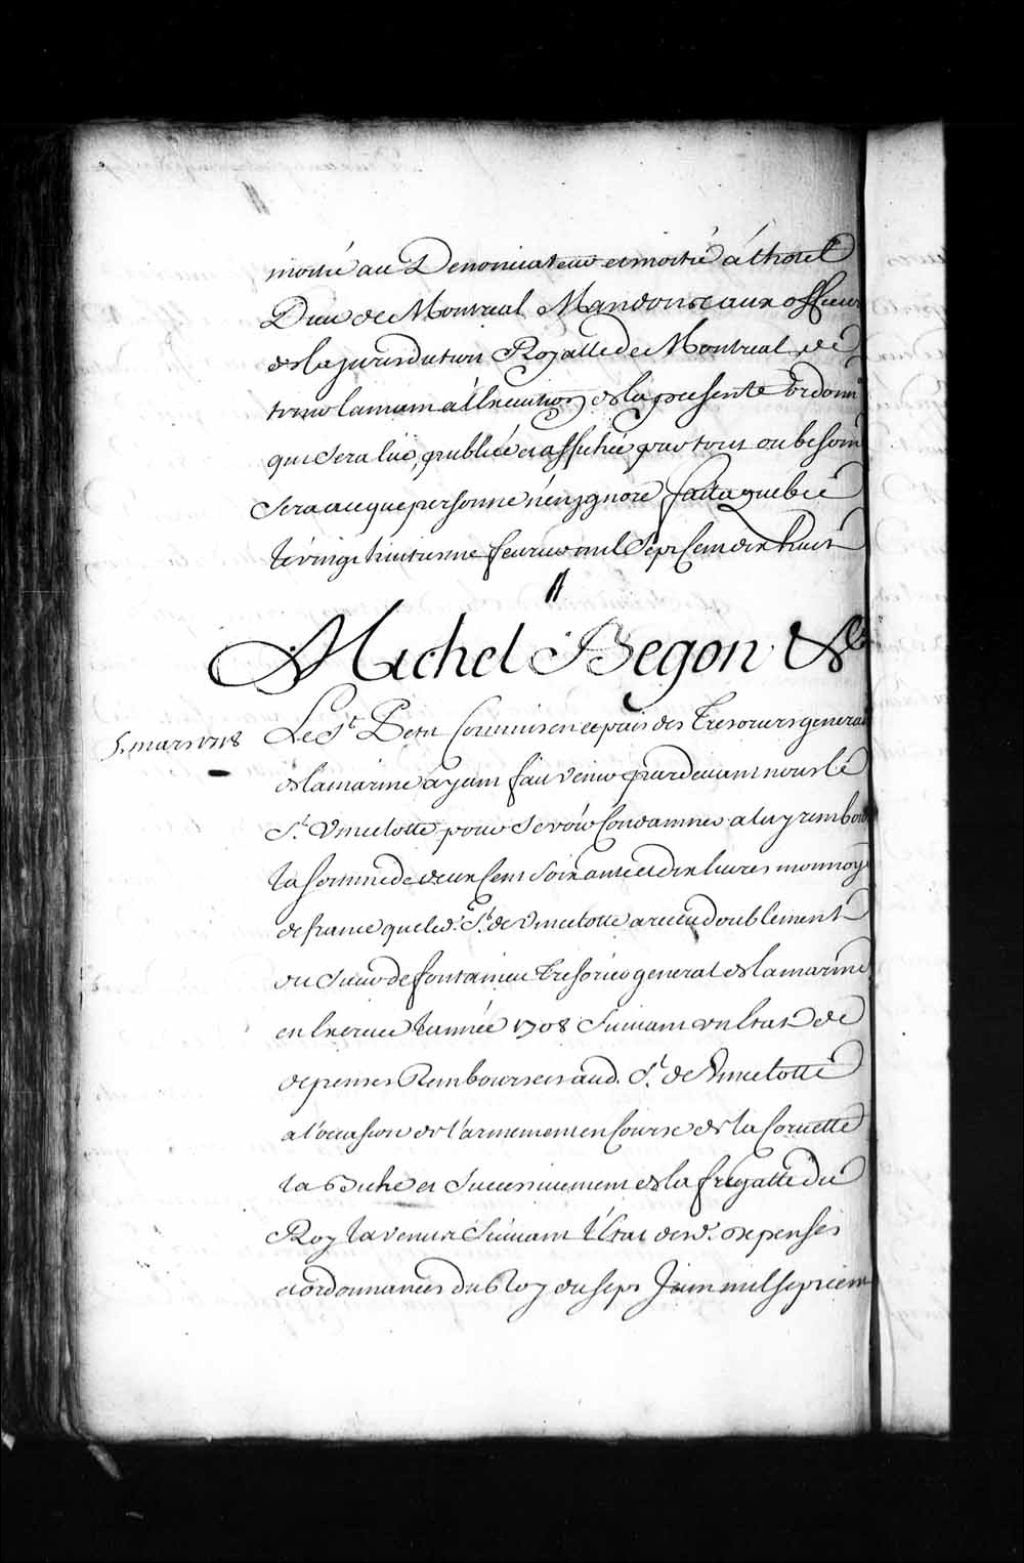 moitié au Denonciateur et moitié a l'hotel
Dieu de Montreal Mandons &c aux officiers
de la jurisdiction Royalle de Montreal de
tenir la main a l'Execution de la presente ordonn.ce
qui sera lüe, publiée et affichée par tout ou besoin
sera a ce que personne n'en ygnore fait a quebec
le vingt huitieme feurier mil sept cent dix huit
Michel Begon &c
5. mars 1718
Le S.r Petit Commis en ce païs des Tresoriers generaux
de la marine ayant fait venir pardeuant nous le
S.r Vincelotte pour se voir Condamner a luy rembour
la somme de deux cent soixante et dix liures monnoye
de france que led. S.r de Vincelotte a receu doublement
du Sieur de fontanieu Tresorier general de la marine
en Exercice l'année 1708 suiuant un Etat de
depenses Remboursées aud. S.r de Vincelotte
a l'occasion de l'armement en Course de la Coruette
la Biche et successiuement de la fregatte du
Roy la Venus suiuant l'Etat desd. depenses
et ordonnances du Roy du sept Juin mil sept cent